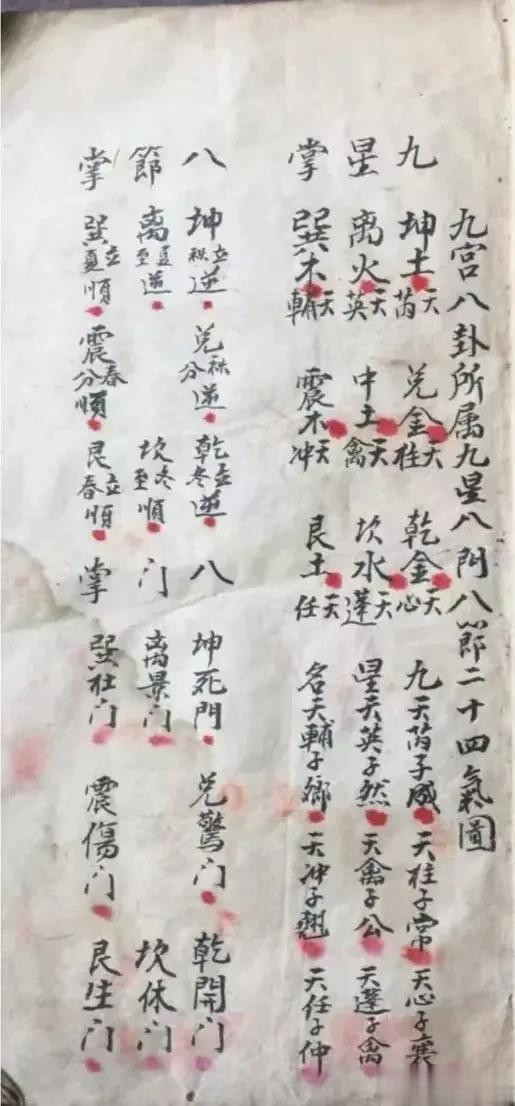 九宫八卦所属九星八門八節二十四氣圖
九 坤土天芮 兑金天柱 乾金天心 九天芮子成 天柱子常 天心子襄
星 离火天英 中土天禽 坎水天蓬 星天英子然 天禽子公 天蓬子禽
掌 巽木天輔 震木天冲 艮土天任 名天輔子鄉 天冲子翘 天任子仲
八 坤立秋逆 兑秋分逆 乾立冬逆 八 坤死門 兑驚门 乾開门
節 离夏至逆 坎冬至順 门 离景门 坎休门
掌 巽立夏順 震春分順 艮立春順 掌 巽杜门 震傷门 艮生门